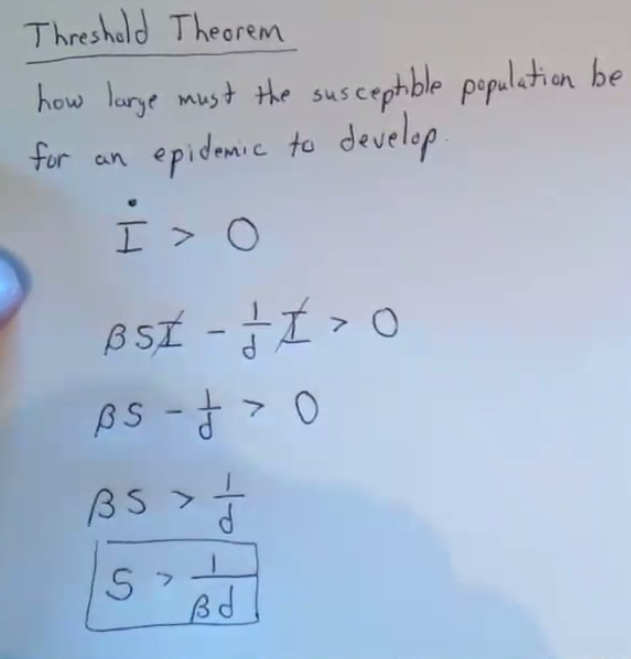 Threshold Theorem
how large must the susceptible population be
for an epidemic to develop.
İ > 0
βSI - 1/d I > 0
βS - 1/d > 0
βS > 1/d
S > 1/βd